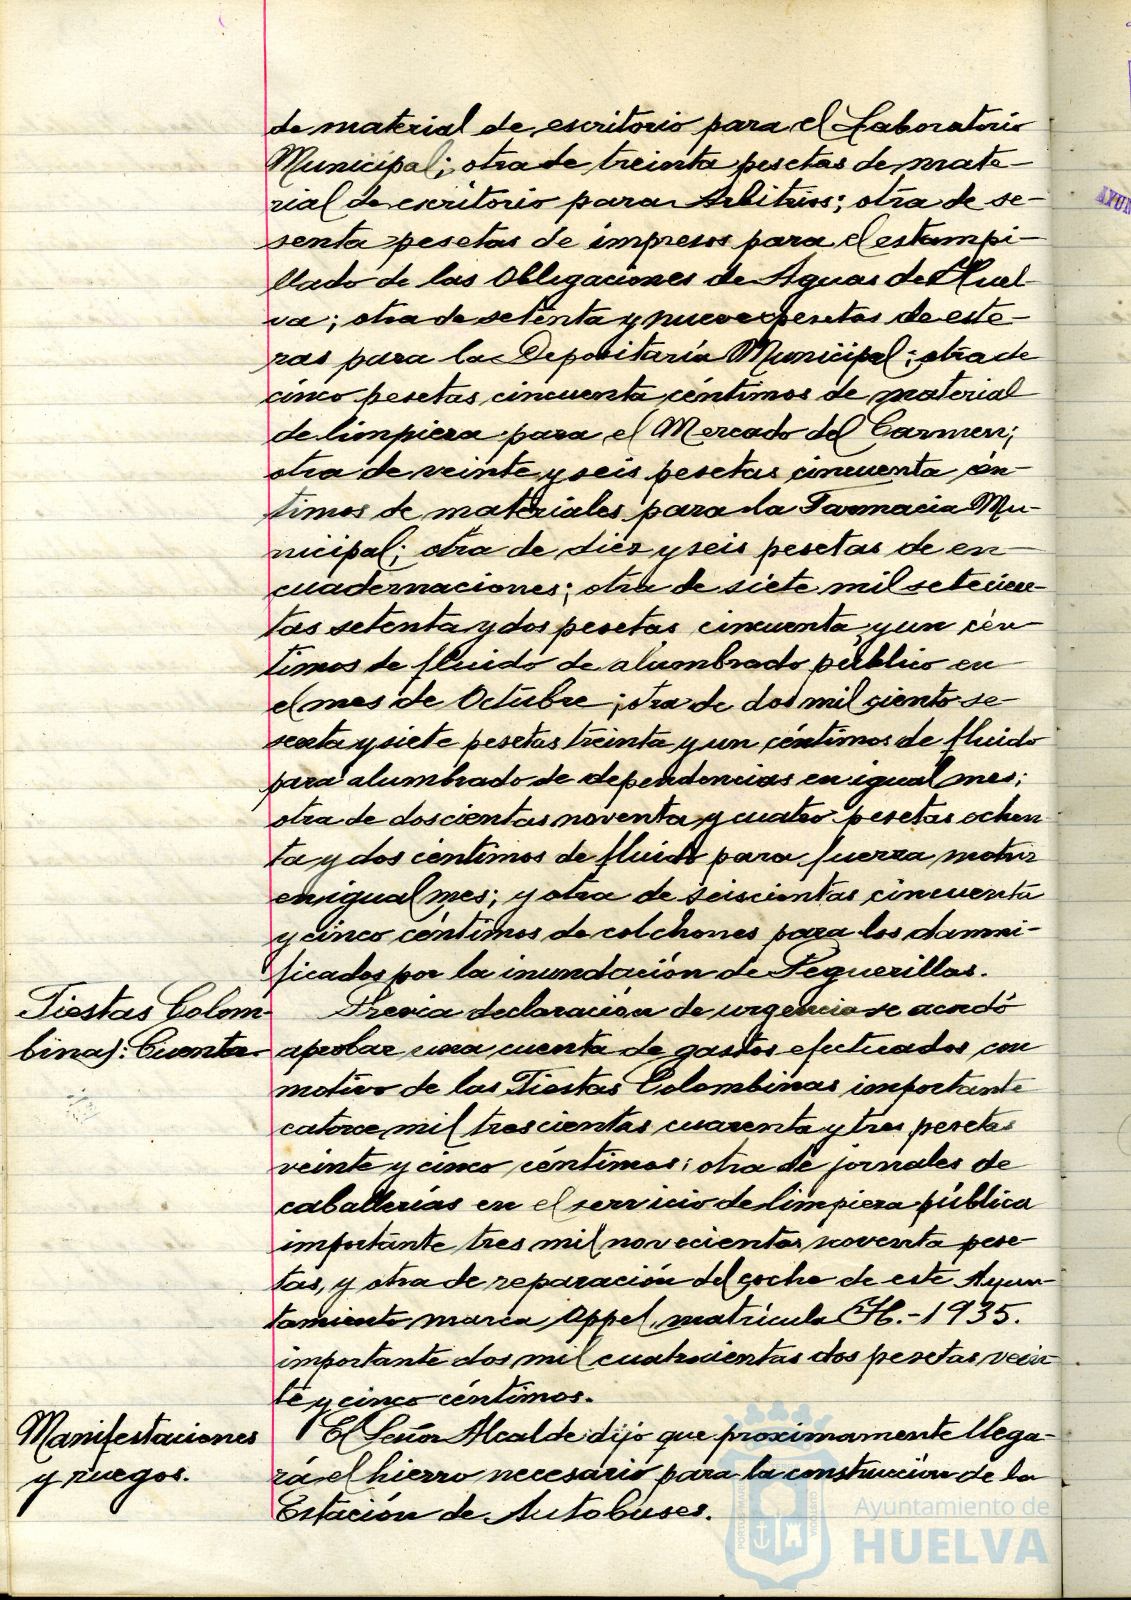 de material de escritorio para el Laboratorio
Municipal; otra de treinta pesetas de mate-
rial de escritorio para Arbitrios; otra de se-
senta pesetas de impresos para el estampi-
llado de las Obligaciones de Aguas de Huel-
va; otra de setenta y nueve pesetas de este-
ras para la Depositaría Municipal; otra de
cinco pesetas cincuenta céntimos de material
de limpieza para el Mercado del Carmen;
otra de veinte y seis pesetas cincuenta cén-
timos de materiales para la Farmacia Mu-
nicipal; otra de diez y seis pesetas de en-
cuadernaciones; otra de siete mil setecien-
tas setenta y dos pesetas cincuenta y un cén-
timos de fluido de alumbrado público en
el mes de Octubre; otra de dos mil ciento se-
senta y siete pesetas treinta y un céntimos de fluido
para alumbrado de dependencias en igual mes;
otra de doscientas noventa y cuatro pesetas ochen
ta y dos céntimos de fluido para fuerza motriz
en igual mes; y otra de seiscientas cincuenta
y cinco céntimos de colchones para los damni-
ficados por la inundación de Peguerillas.
Fiestas Colom-
binas: Cuenta
Previa declaración de urgencia se acordó
aprobar una cuenta de gastos efectuados con
motivo de las Fiestas Colombinas importante
catorce mil trescientas cuarenta y tres pesetas
veinte y cinco céntimos; otra de jornales de
caballerías en el servicio de limpieza pública
importante tres mil novecientas noventa pese-
tas, y otra de reparación del coche de este Ayun-
tamiento marca Oppel, matrícula H.-1935.
importante dos mil cuatrocientas dos pesetas vein-
te y cinco céntimos.
Manifestaciones
y ruegos.
El Señor Alcalde dijo que proximamente llega-
rá el hierro necesario para la construcción de la
Estación de Autobuses.
Ayuntamiento de
HUELVA